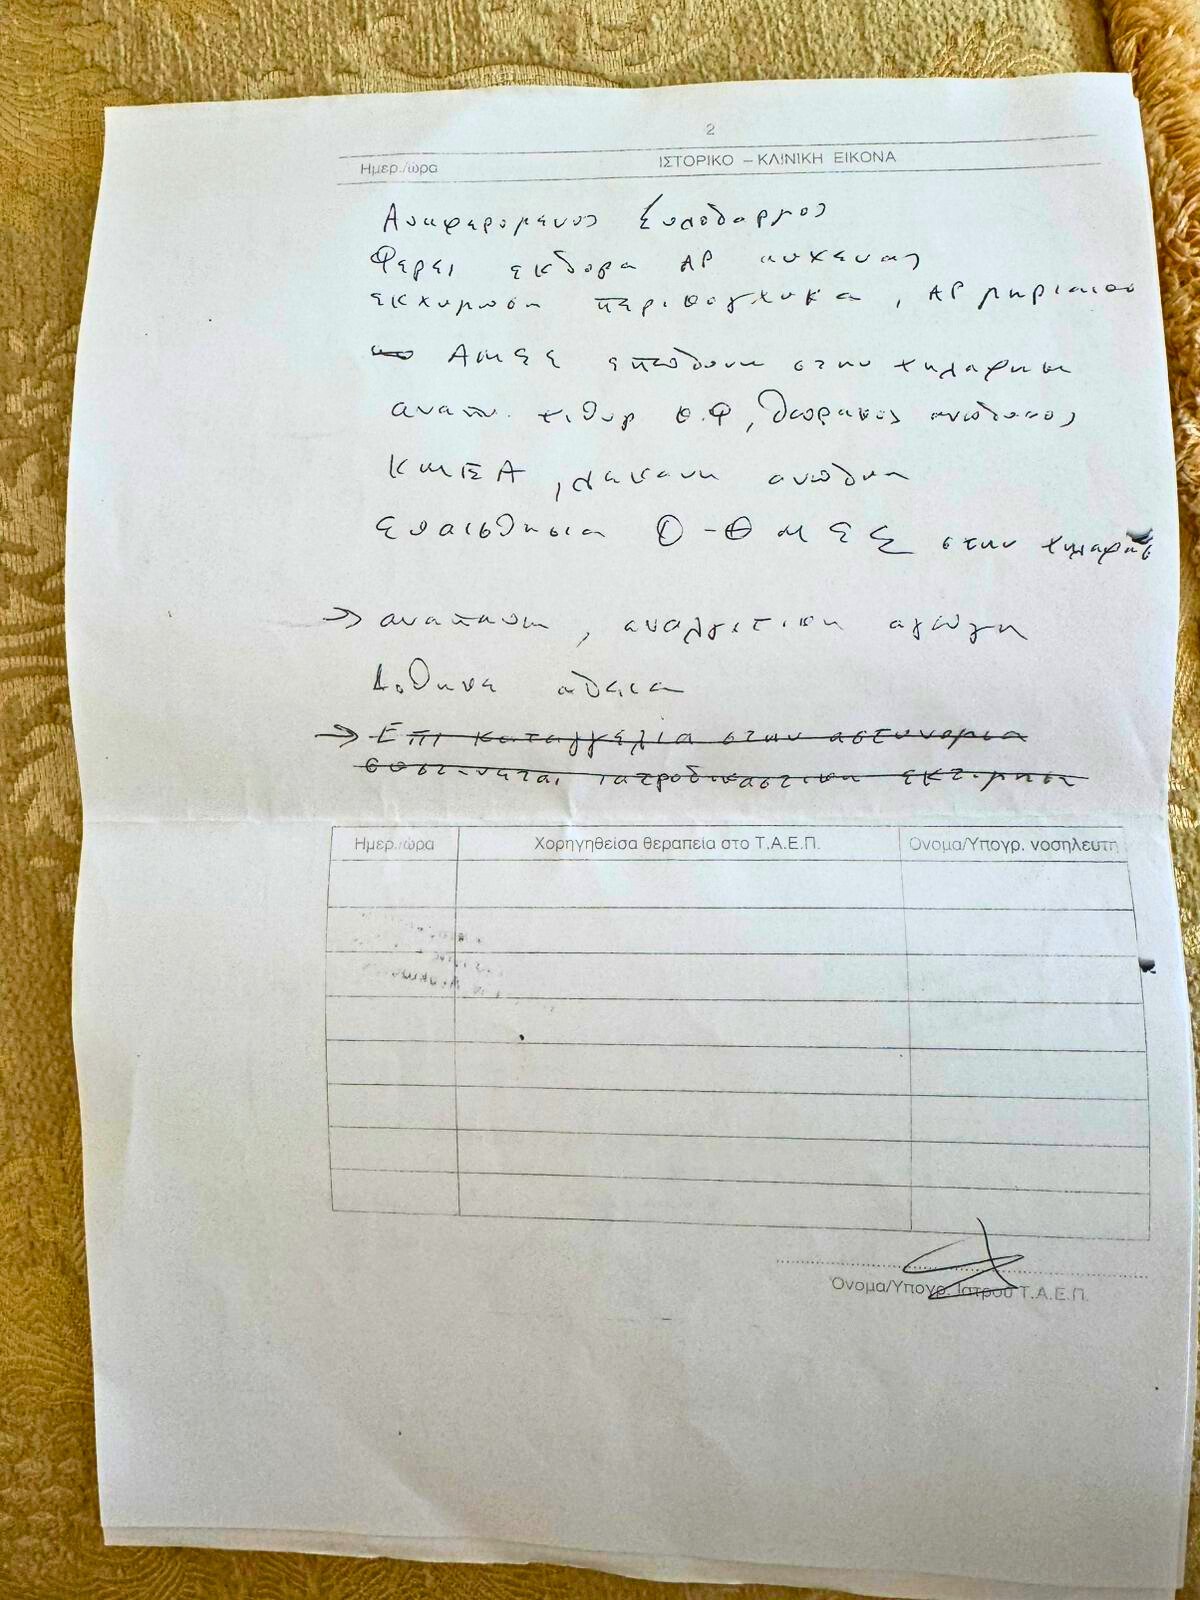 2
Ημερ./ώρα ΙΣΤΟΡΙΚΟ – ΚΛΙΝΙΚΗ ΕΙΚΟΝΑ
Αναφερομενος ξυλοδαρμος
Φερει εκδορα ΑΡ αυχενας
εκχυμωση , ΑΡ μηριαιου
ΑΜΣΣ επωδυνη στην ψηλαφηση
αναπν. ψιθυρ Θωρακας ανωδυνος
λεκανη ανωδυνη
Ευαισθησια Ο-Θ ΜΣΣ στην
→ αναπαυση , αναλγιτικη αγωγη
Δοθηκε αδεια
→ Επι καταγγελια στην αστυνομια
συστηνεται ιατροδικαστικη εκτιμηση
Ημερ./ώρα Χορηγηθείσα θεραπεία στο Τ.Α.Ε.Π. Ονομα/Υπογρ. νοσηλευτη
Όνομα/Υπογρ. Ιατρού Τ.Α.Ε.Π.